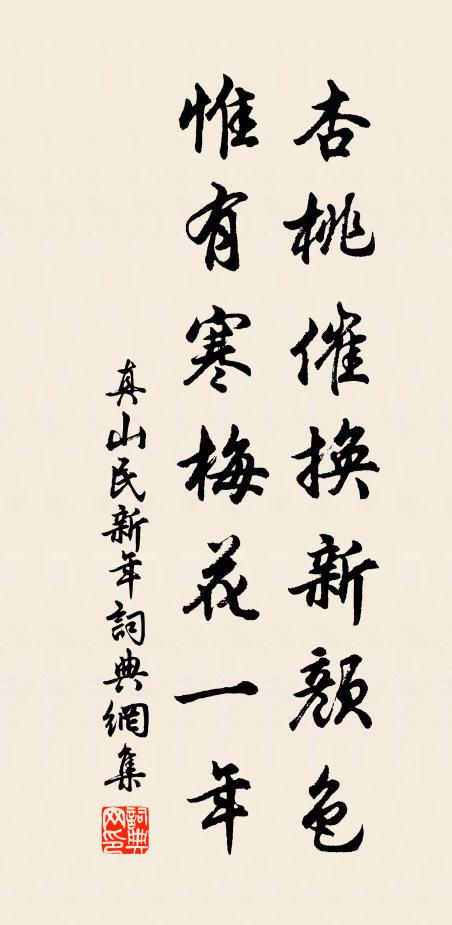 杏桃催換新顏色
惟有寒梅花一年
真山民新年詞典網集
詞典網印